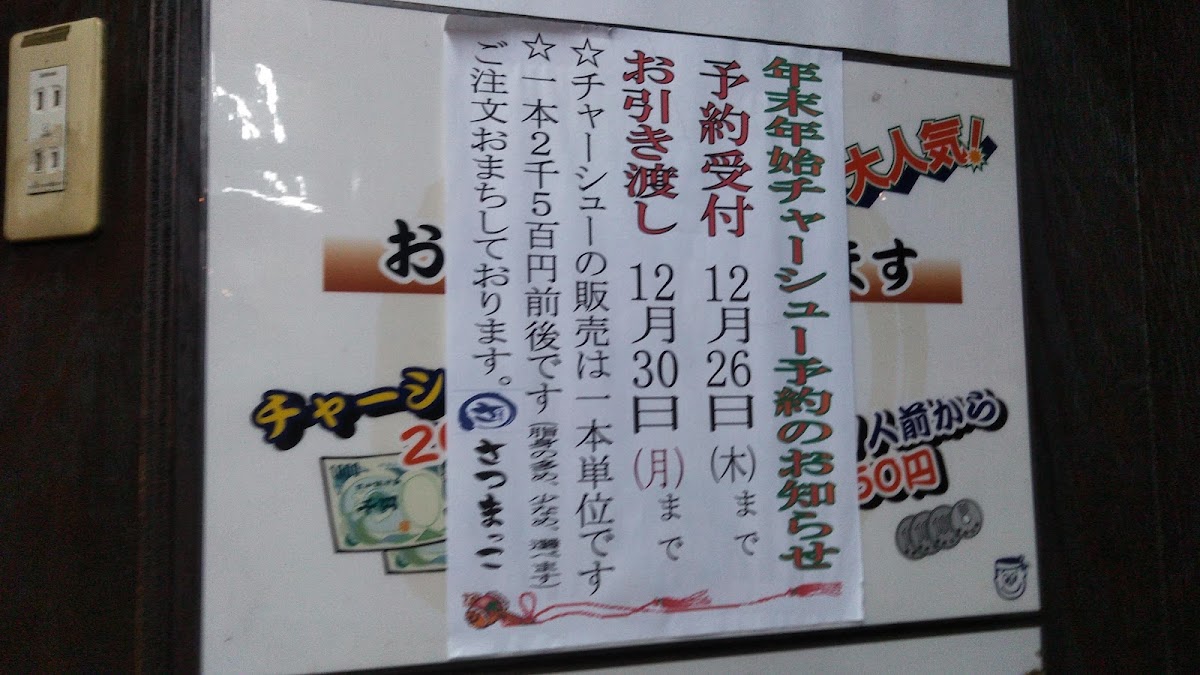 年末年始チャーシュー予約のお知らせ
予約受付 12月26日(木)まで
お引き渡し 12月30日(月)まで
☆チャーシューの販売は一本単位です
☆一本2千5百円前後です(脂身の多め、少なめ、選べます)
ご注文おまちしております。
さつまっこ
大人気!
お
ます
チャーシ
人前から
50円